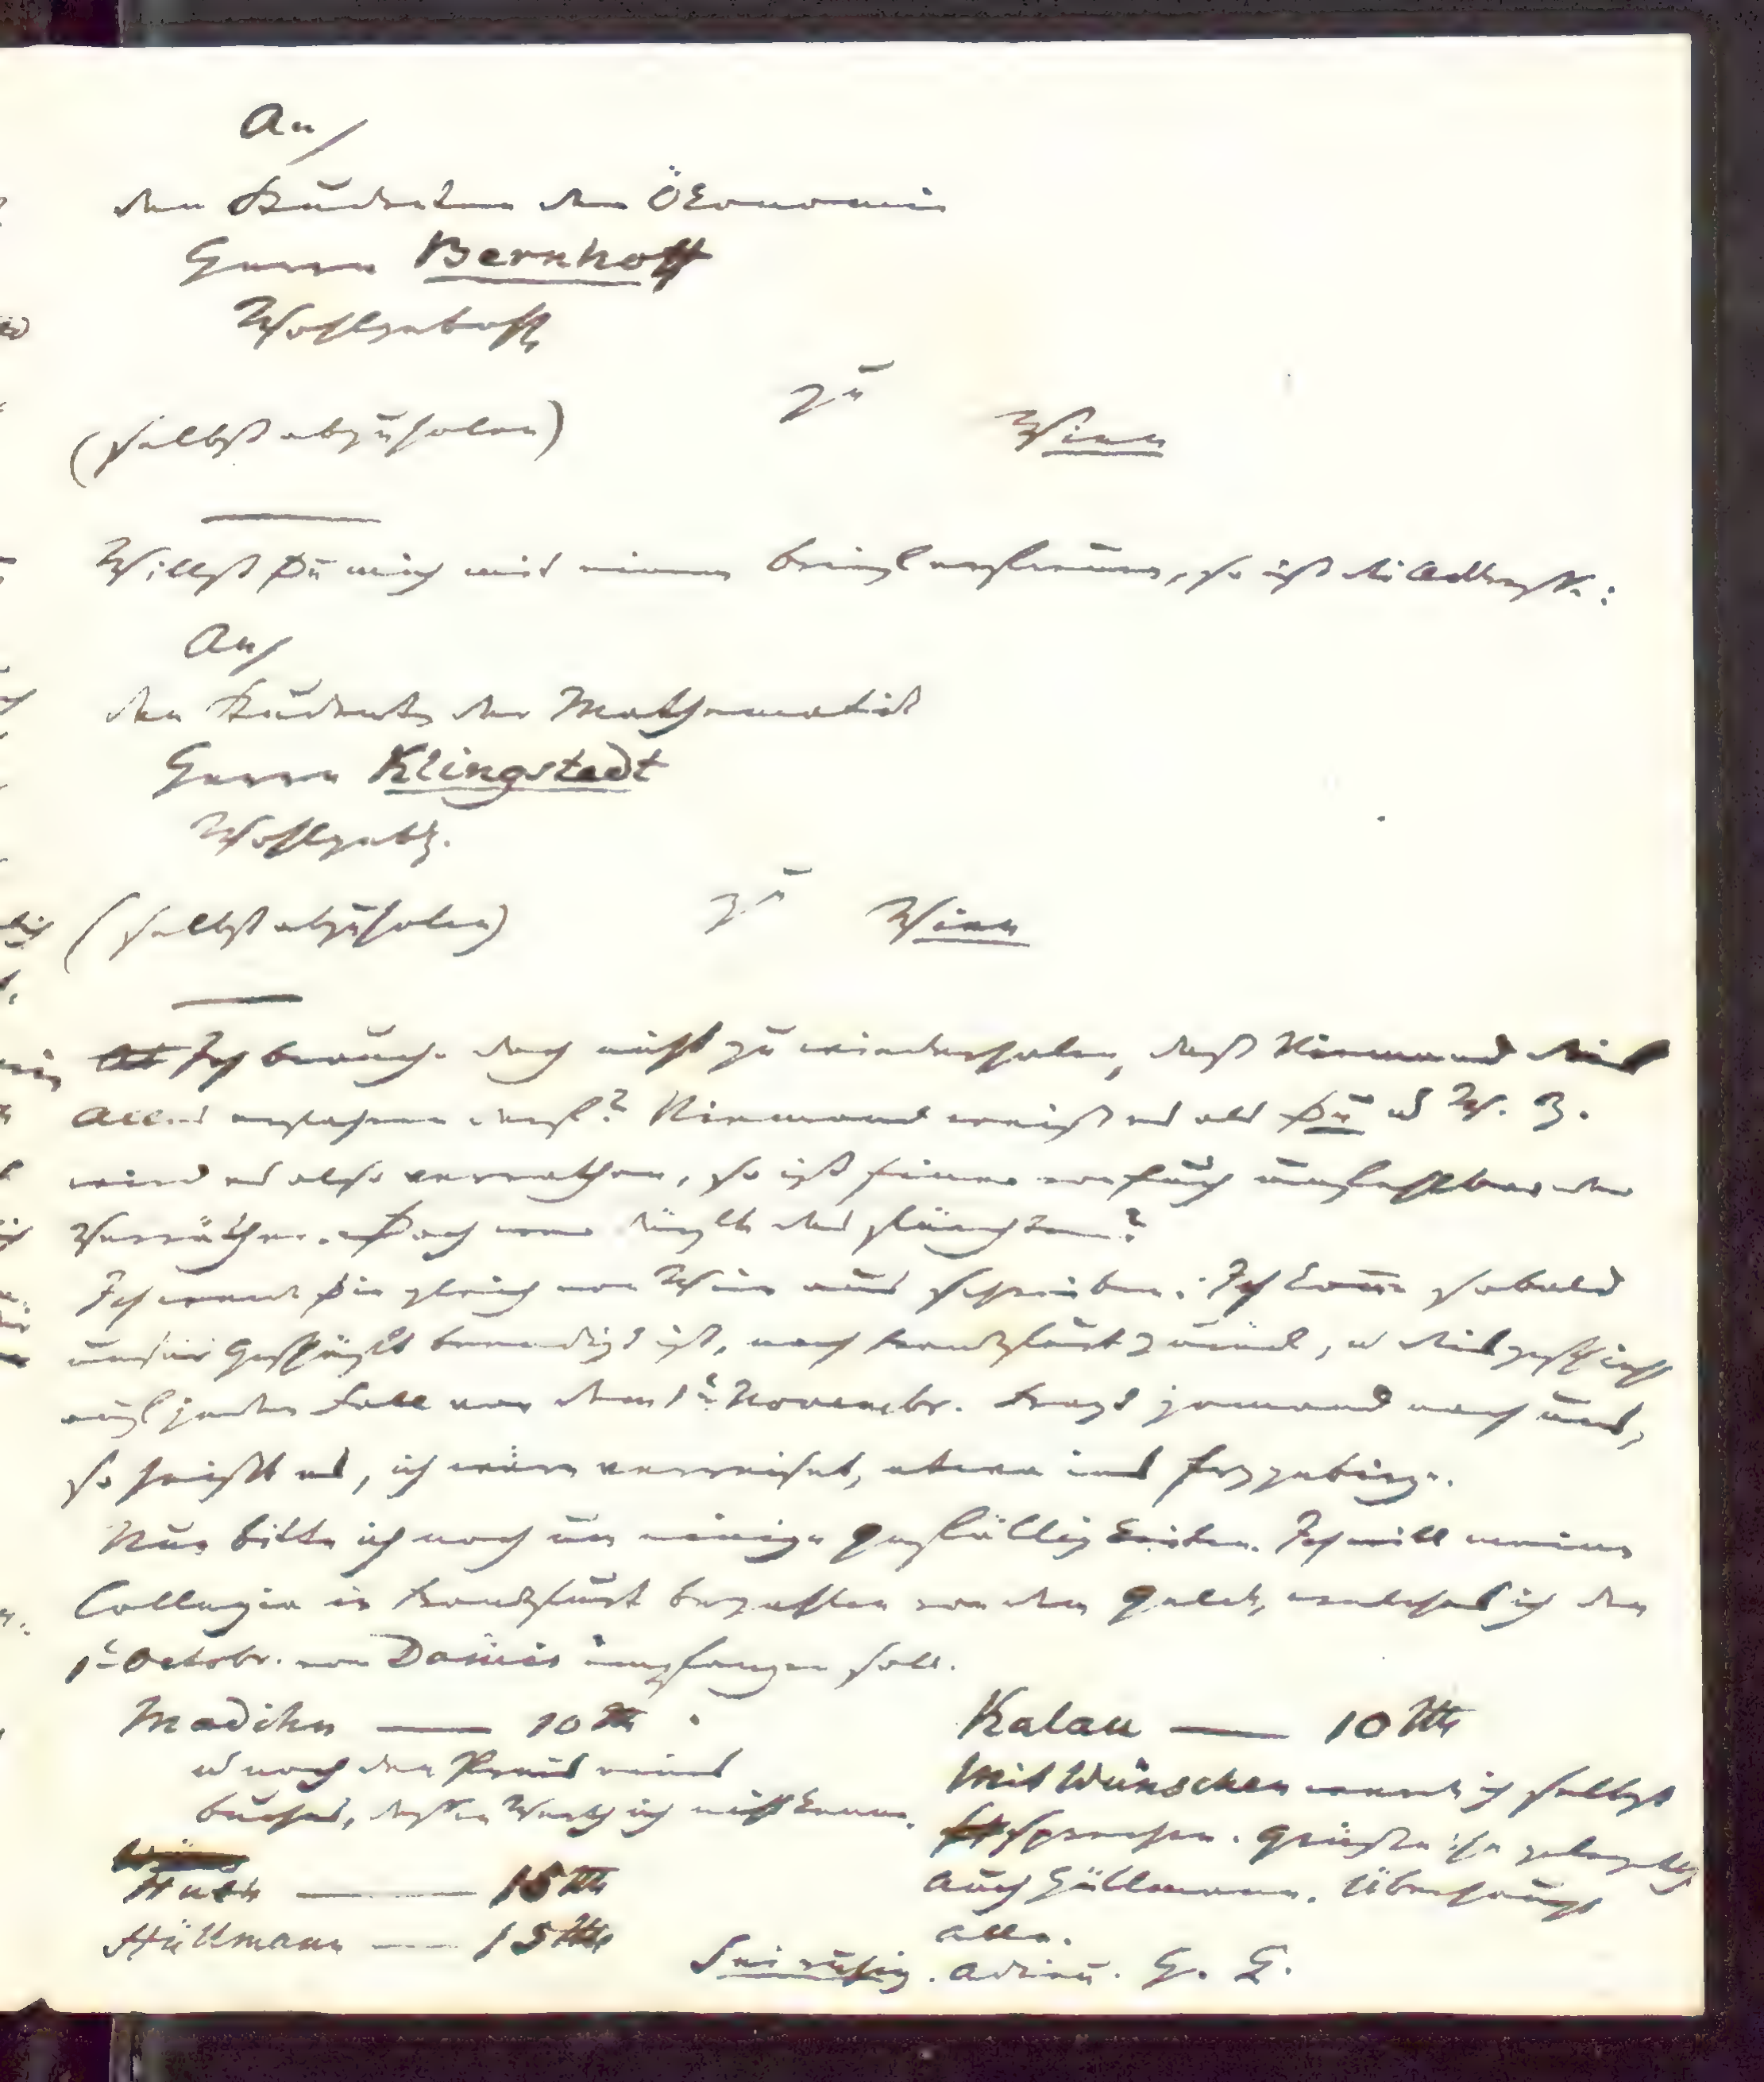 An
den Studenten der Ökonomie
Herrn Bernhoff
Wohlgeb.
zu
(selbst abzuholen)
Wien
Willst Du mich mit einem Brief erfreuen, so ist die Addresse:
An
den Studenten der Mathematik
Herrn Klingstedt
Wohlgeb.
(selbst abzuholen) zu Wien
Ich brauche doch nicht zu wiederholen, daß Niemand dies
Alles erfahren darf? Niemand weiß es als Du u W. Z.
wird es also verrathen, so ist einer von Euch unfehlbar der
Verräther. Doch wer dürfte das fürchten?
Ich werde Dir gleich von Wien aus schreiben. Ich komme sobald
unser Geschäft beendigt ist, nach Frankfurt zurück, u dies geschieht
auf jeden Fall vor dem 1t Novembr. Fragt jemand nach uns,
so heißt es, ich wäre verreiset, etwa ins Erzgebirge.
Nur bitte ich noch um einige Gefälligkeiten. Ich will meine
Collegia in Frankfurt bezahlen von dem Gelde, welches ich den
1t Octobr. von Dames empfangen soll.
Madihn — 10 Rth
u noch den Preis eines
Buches, dessen Werth ich nicht kenne.
Huth — 15 Rth
Hüllmann — 15 Rth
Kalau — 10 Rth
Mit Wünschen werde ich selbst
sprechen. Grüße ihn gelegentlich
auch Hüllmann. Überhaupt
alle.
Sei ruhig. Adieu. H. K.